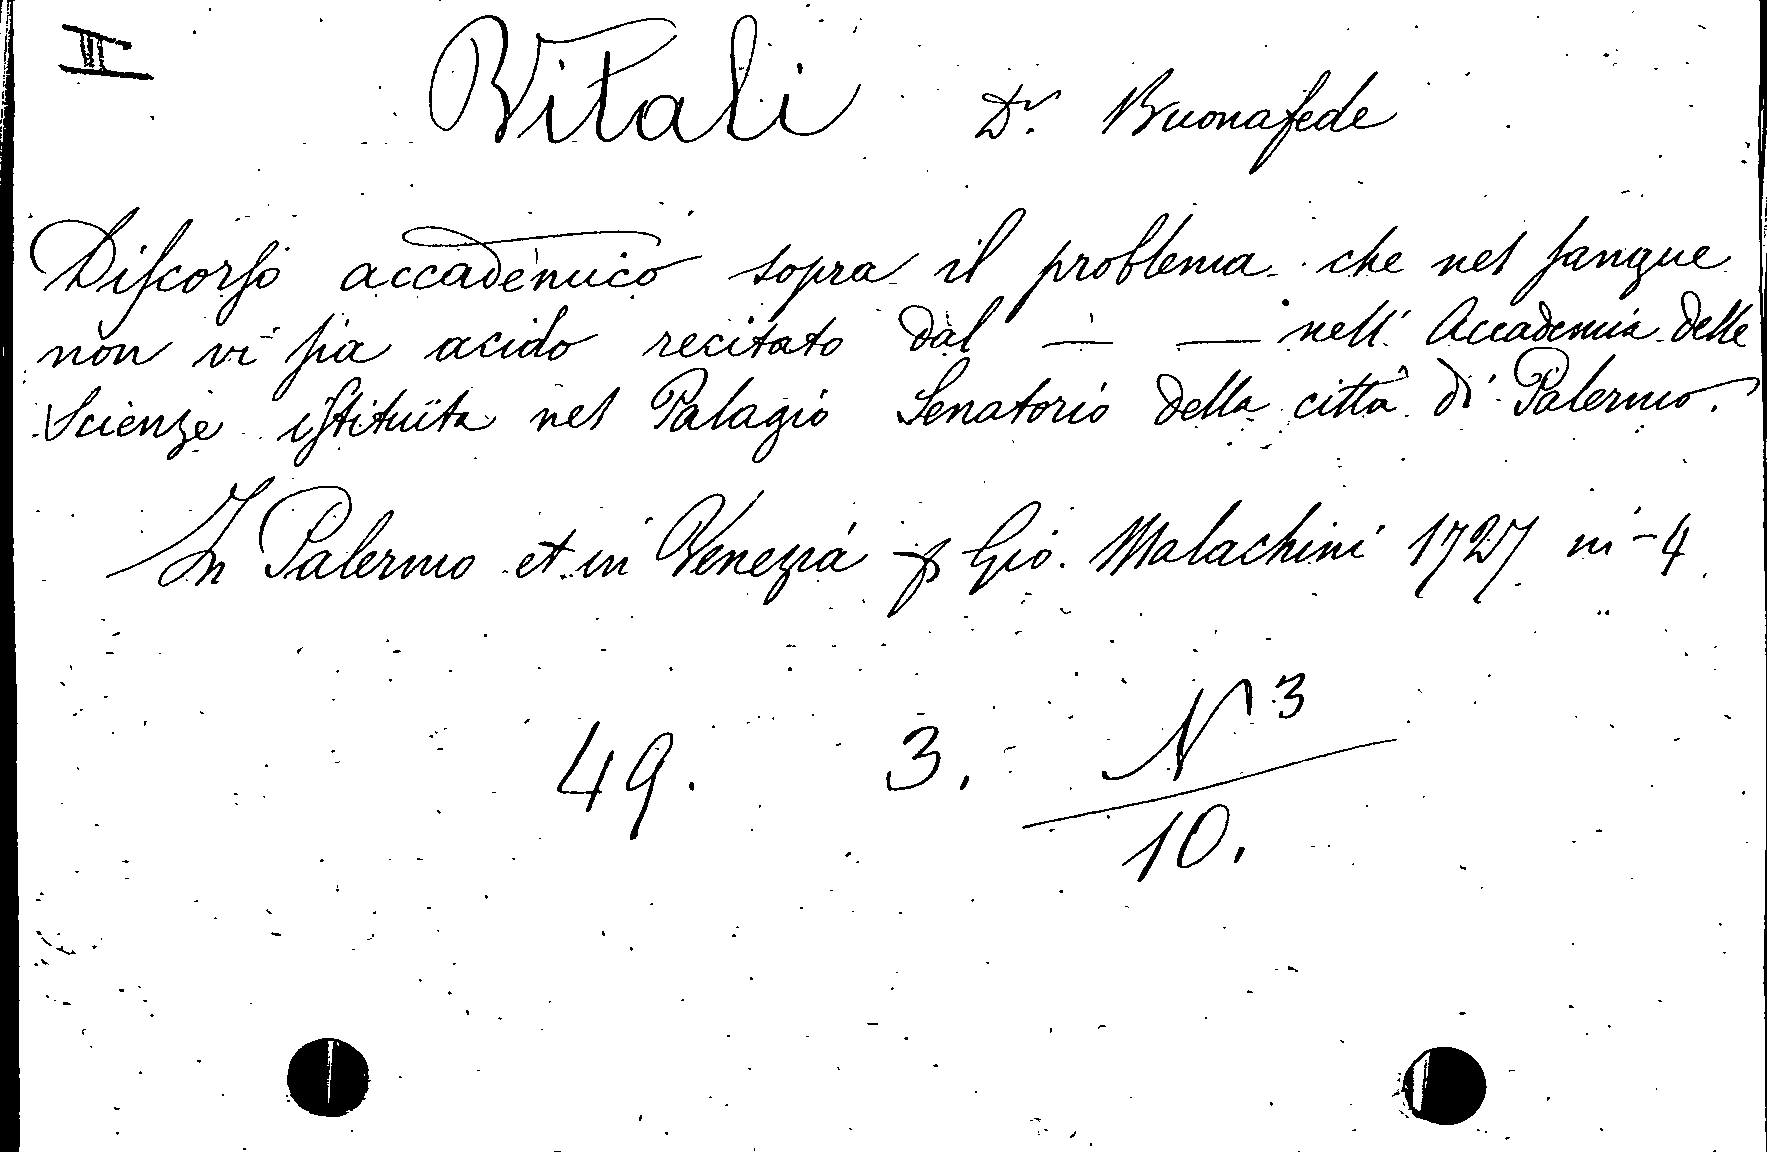 III
Vitali Dr. Buonafede
Diſcorſo accademico sopra il problema che nel ſangue
non vi ſia acido recitato dal — — nell' Accademia delle
Scienze iſtituita nel Palagio Senatorio della città di Palermo.
In Palermo et in Venezia p Gio. Malachini 1727 in-4
49. 3. N 3
10.